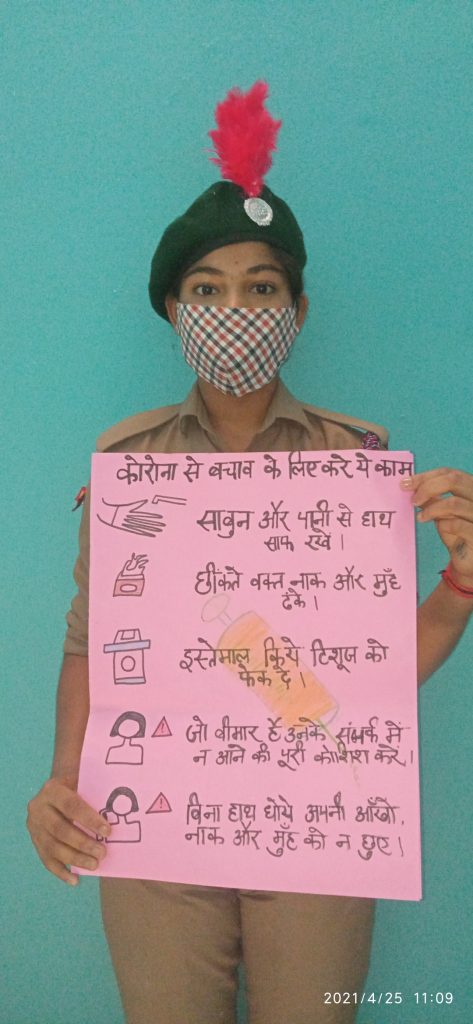 कोरोना से बचाव के लिए करे ये काम
साबुन और पानी से हाथ
साफ रखें।
छींकते वक्त नाक और मुँह
ढंके।
इस्तेमाल किये टिशूज को
फेंक दे।
जो बीमार हैं उनके संपर्क में
न आने की पूरी कोशिश करें।
बिना हाथ धोये अपनी आँखो,
नाक और मुँह को न छुए।
2021/4/25 11:09